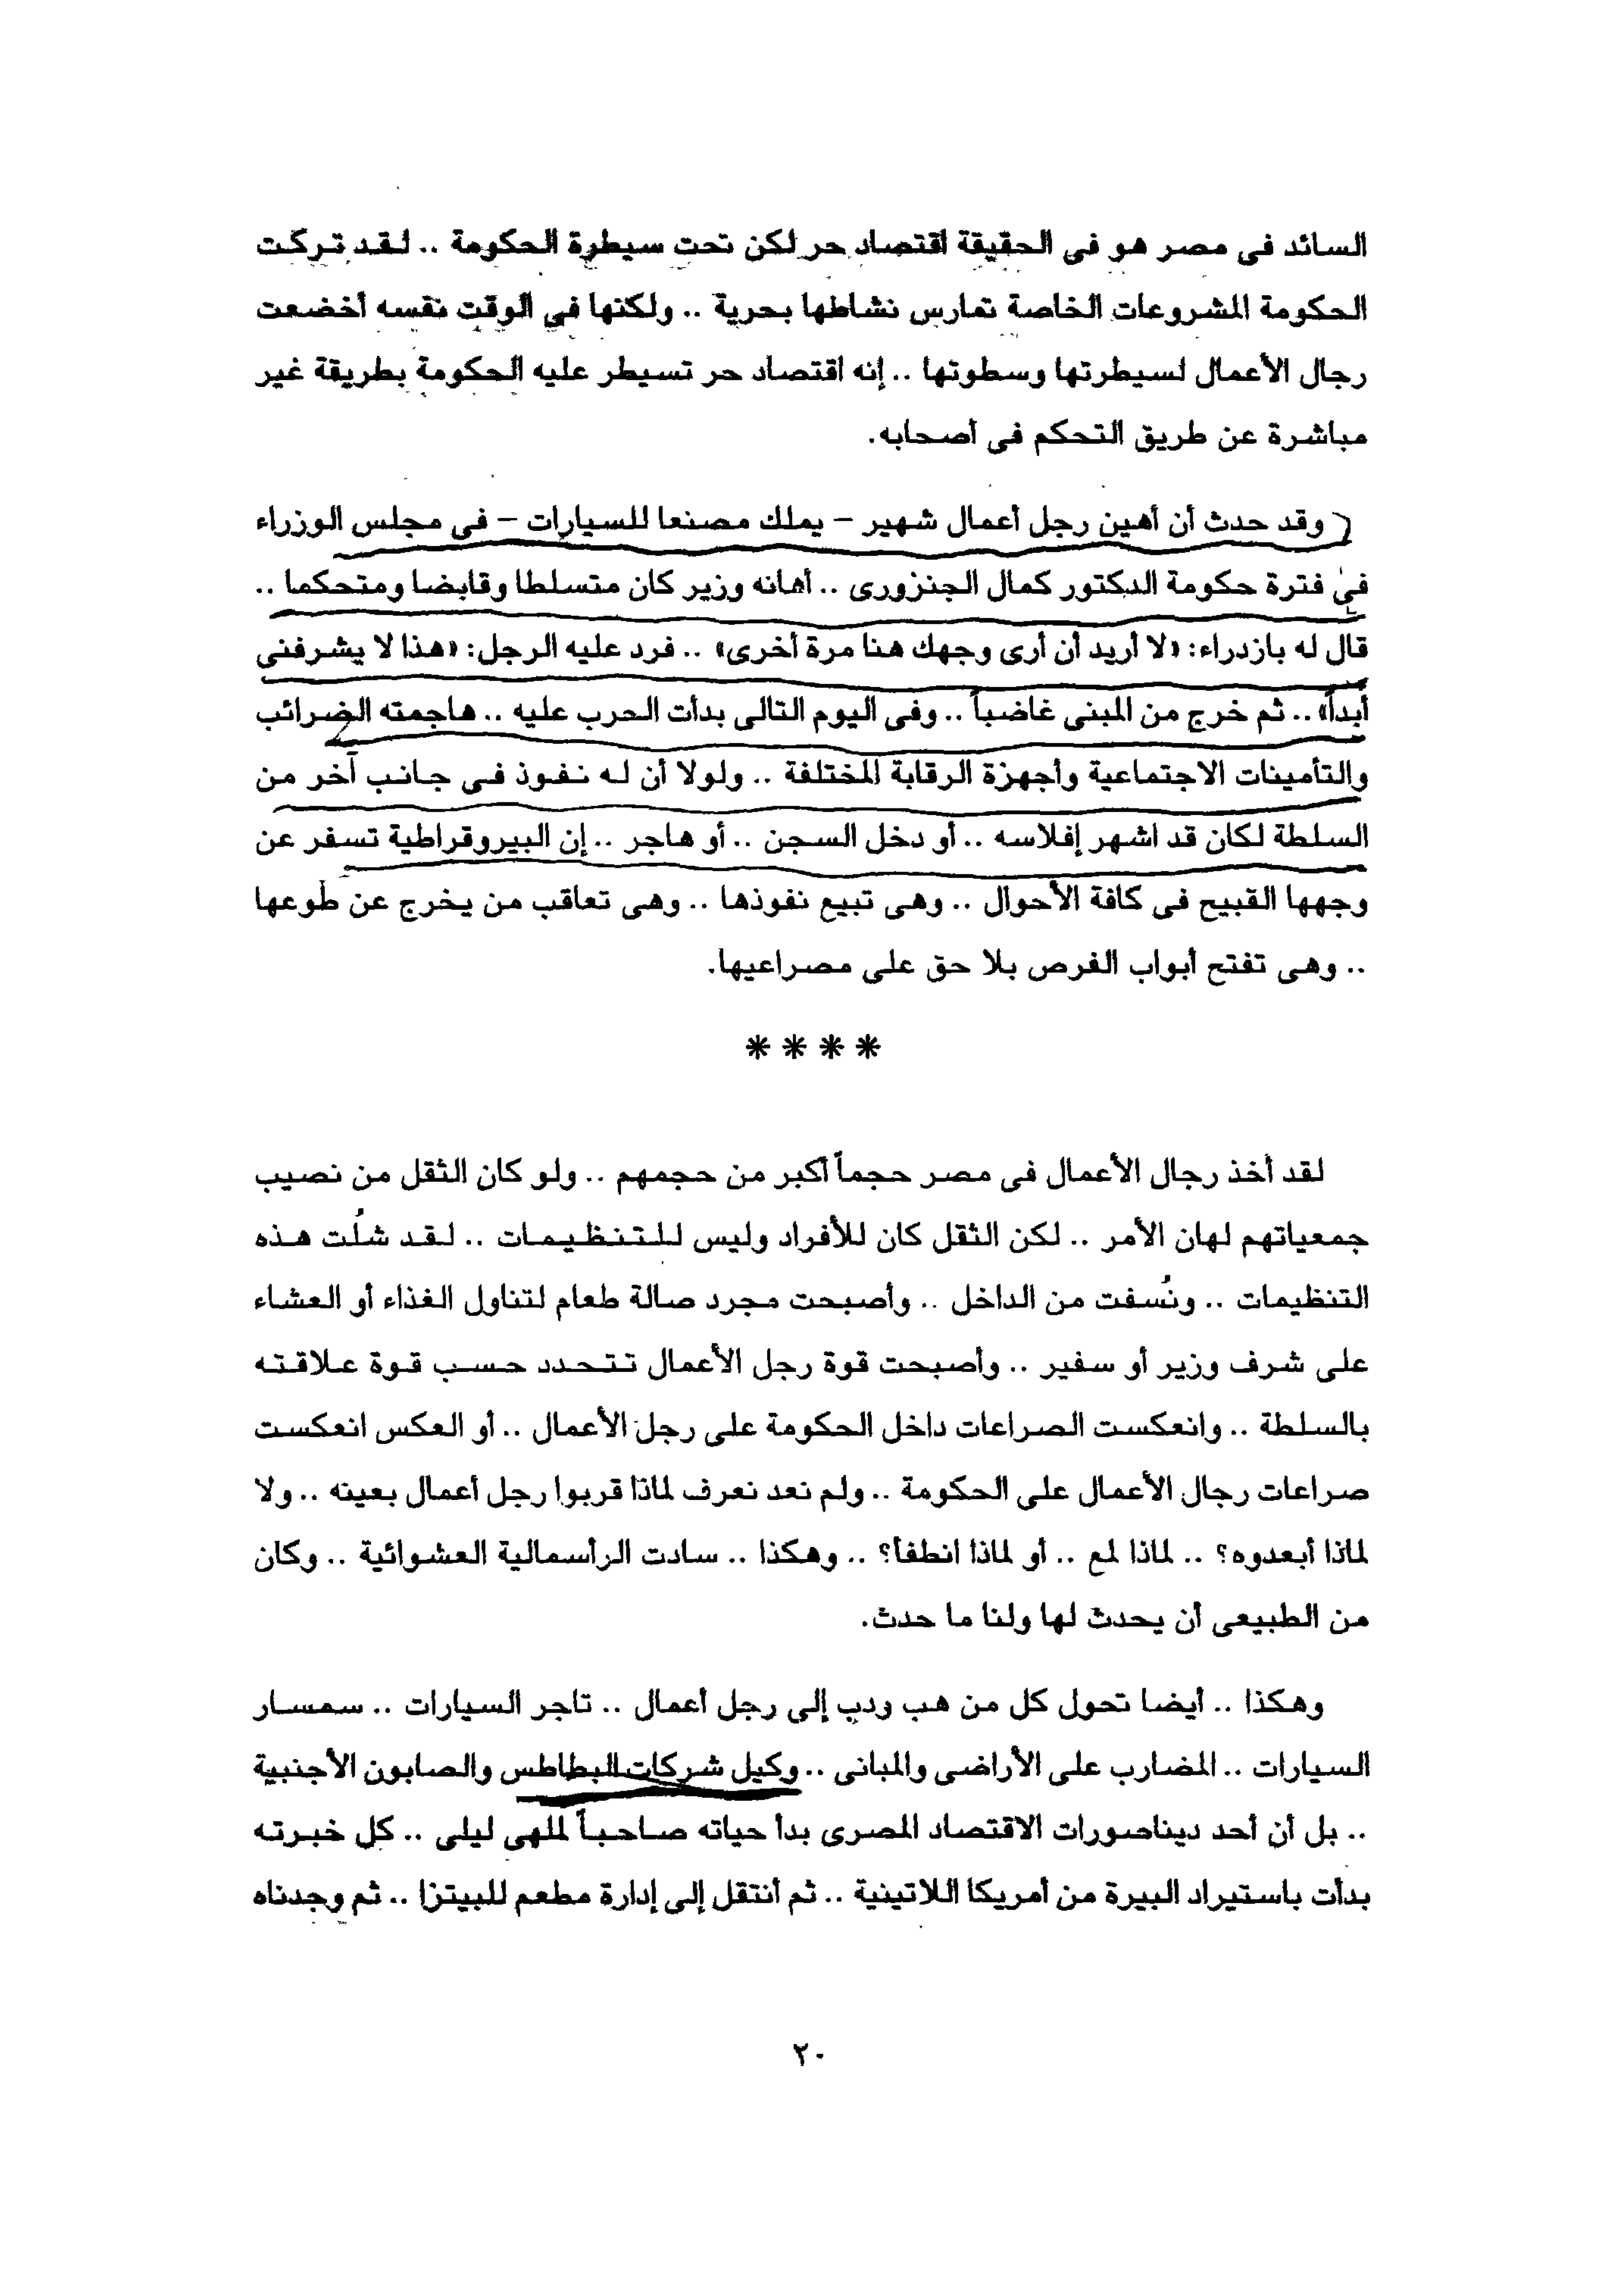 السائد فى مصر هو فى الحقيقة اقتصاد حر لكن تحت سيطرة الحكومة .. لقد تركت
الحكومة المشروعات الخاصة تمارس نشاطها بحرية .. ولكنها فى الوقت نفسه أخضعت
رجال الأعمال لسيطرتها وسطوتها .. إنه اقتصاد حر تسيطر عليه الحكومة بطريقة غير
مباشرة عن طريق التحكم فى أصحابه.
وقد حدث أن أهين رجل أعمال شهير – يملك مصنعا للسيارات – فى مجلس الوزراء
فى فترة حكومة الدكتور كمال الجنزورى .. أهانه وزير كان متسلطا وقابضا ومتحكما ..
قال له بازدراء: «لا أريد أن أرى وجهك هنا مرة أخرى» .. فرد عليه الرجل: «هذا لا يشرفنى
أبداً» .. ثم خرج من المبنى غاضباً .. وفى اليوم التالى بدأت الحرب عليه .. هاجمته الضرائب
والتأمينات الاجتماعية وأجهزة الرقابة المختلفة .. ولولا أن له نفوذ فى جانب آخر من
السلطة لكان قد اشهر إفلاسه .. أو دخل السجن .. أو هاجر .. إن البيروقراطية تسفر عن
وجهها القبيح فى كافة الأحوال .. وهى تبيع نفوذها .. وهى تعاقب من يخرج عن طوعها
.. وهى تفتح أبواب الفرص بلا حق على مصراعيها.
****
لقد أخذ رجال الأعمال فى مصر حجماً أكبر من حجمهم .. ولو كان الثقل من نصيب
جمعياتهم لهان الأمر .. لكن الثقل كان للأفراد وليس للتنظيمات .. لقد شُلت هذه
التنظيمات .. ونُسفت من الداخل .. وأصبحت مجرد صالة طعام لتناول الغذاء أو العشاء
على شرف وزير أو سفير .. وأصبحت قوة رجل الأعمال تتحدد حسب قوة علاقته
بالسلطة .. وانعكست الصراعات داخل الحكومة على رجل الأعمال .. أو العكس انعكست
صراعات رجال الأعمال على الحكومة .. ولم نعد نعرف لماذا قربوا رجل أعمال بعينه .. ولا
لماذا أبعدوه؟ .. لماذا لمع .. أو لماذا انطفأ؟ .. وهكذا .. سادت الرأسمالية العشوائية .. وكان
من الطبيعى أن يحدث لها ولنا ما حدث.
وهكذا .. أيضا تحول كل من هب ودب إلى رجل أعمال .. تاجر السيارات .. سمسار
السيارات .. المضارب على الأراضى والمبانى .. وكيل شركات البطاطس والصابون الأجنبية
.. بل أن أحد ديناصورات الاقتصاد المصرى بدأ حياته صاحباً لملهى ليلى .. كل خبرته
بدأت باستيراد البيرة من أمريكا اللاتينية .. ثم أنتقل إلى إدارة مطعم للبيتزا .. ثم وجدناه
٢٠